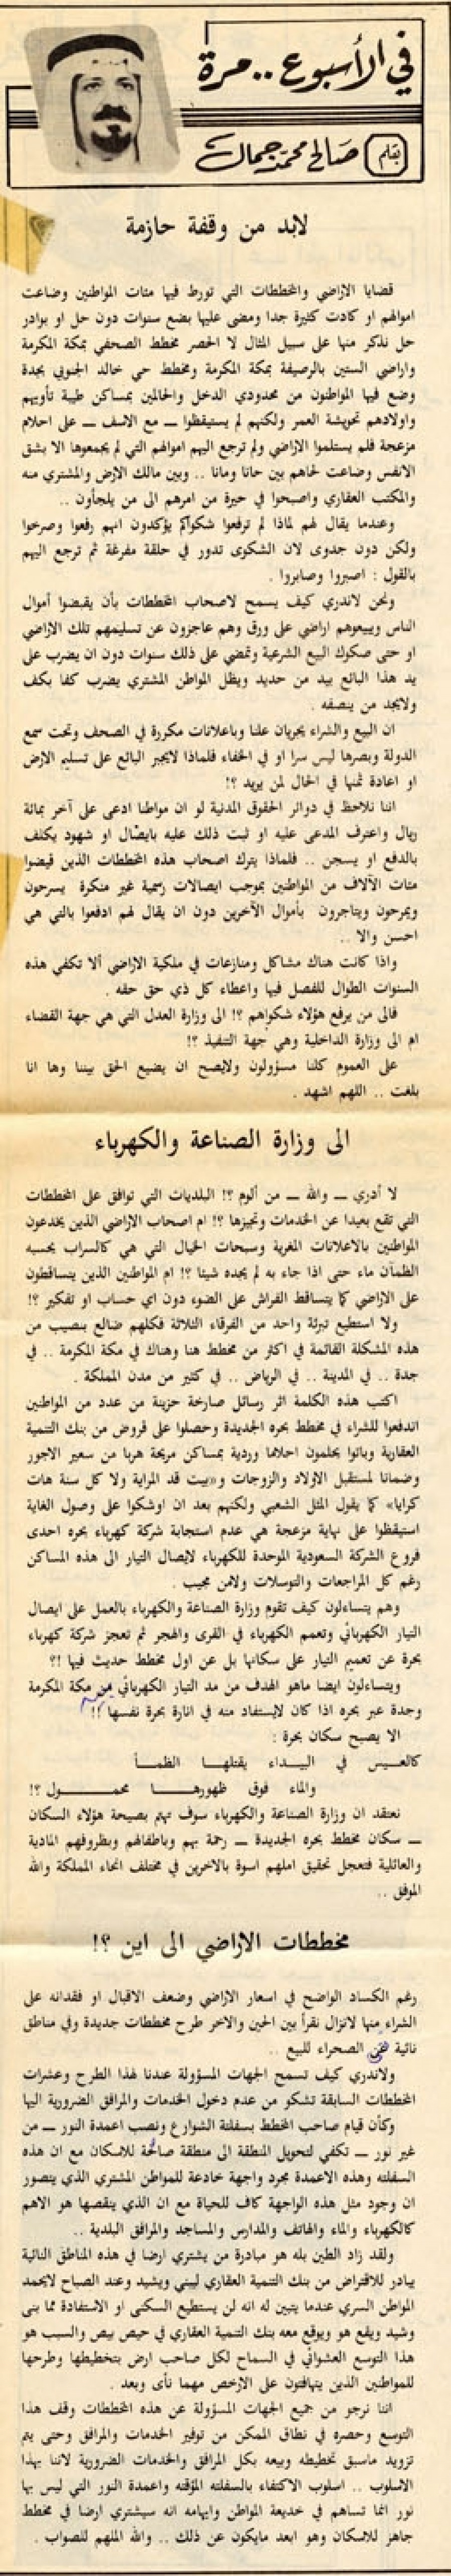 في الأسبوع .. مرة
بقلم
صالح محمد جمال
لابد من وقفة حازمة
قضايا الاراضي والمخططات التي تورط فيها مئات المواطنين وضاعت
اموالهم او كادت كثيرة جدا ومضى عليها بضع سنوات دون حل او بوادر
حل نذكر منها على سبيل المثال لا الحصر مخطط الصحفي بمكة المكرمة
واراضي الستين بالرصيفة بمكة المكرمة ومخطط حي خالد الجنوبي بجدة
وضع فيها المواطنون من محدودي الدخل والحالمين بمساكن طيبة تأويهم
واولادهم تحويشة العمر ولكنهم لم يستيقظوا ــ مع الاسف ــ على احلام
مزعجة فلم يستلموا الاراضي ولم ترجع اليهم اموالهم التي لم يجمعوها الا بشق
الانفس وضاعت لحاهم بين حانا ومانا .. وبين مالك الارض والمشتري منه
والمكتب العقاري واصبحوا في حيرة من امرهم الى من يلجأون ..
وعندما يقال لهم لماذا لم ترفعوا شكواكم يؤكدون انهم رفعوا وصرخوا
ولكن دون جدوى لان الشكوى تدور في حلقة مفرغة ثم ترجع اليهم
بالقول : اصبروا وصابروا .
ونحن لاندري كيف يسمح لاصحاب المخططات بأن يقبضوا أموال
الناس ويبيعوهم اراضي على ورق وهم عاجزون عن تسليمهم تلك الاراضي
او حتى صكوك البيع الشرعية وتمضي على ذلك سنوات دون ان يضرب على
يد هذا البائع بيد من حديد ويظل المواطن المشتري يضرب كفا بكف
ولايجد من ينصفه .
ان البيع والشراء يجريان علنا وباعلانات مكررة في الصحف وتحت سمع
الدولة وبصرها ليس سرا او في الخفاء فلماذا لايجبر البائع على تسليم الارض
او اعادة ثمنها في الحال لمن يريد ؟!
اننا نلاحظ في دوائر الحقوق المدنية لو ان مواطنا ادعى على آخر بمائة
ريال واعترف المدعى عليه او ثبت ذلك عليه بايصال او شهود يكلف
بالدفع او يسجن .. فلماذا يترك اصحاب هذه المخططات الذين قبضوا
مئات الآلاف من المواطنين بموجب ايصالات رسمية غير منكرة يسرحون
ويمرحون ويتاجرون بأموال الآخرين دون ان يقال لهم ادفعوا بالتي هي
احسن والا ..
واذا كانت هناك مشاكل ومنازعات في ملكية الاراضي ألا تكفي هذه
السنوات الطوال للفصل فيها واعطاء كل ذي حق حقه .
فالى من يرفع هؤلاء شكواهم ؟! الى وزارة العدل التي هي جهة القضاء
ام الى وزارة الداخلية وهي جهة التنفيذ ؟!
على العموم كلنا مسؤولون ولايصح ان يضيع الحق بيننا وها انا
بلغت .. اللهم اشهد .
الى وزارة الصناعة والكهرباء
لا أدري ــ والله ــ من ألوم ؟! البلديات التي توافق على المخططات
التي تقع بعيدا عن الخدمات وتجيزها ؟! ام اصحاب الاراضي الذين يخدعون
المواطنين بالاعلانات المغرية وسبحات الخيال التي هي كالسراب يحسبه
الظمآن ماء حتى اذا جاء به لم يجده شيئا ؟! ام المواطنين الذين يتساقطون
على الاراضي كما يتساقط الفراش على الضوء دون اي حساب او تفكير ؟!
ولا استطيع تبرئة واحد من الفرقاء الثلاثة فكلهم ضالع بنصيب من
هذه المشكلة القائمة في اكثر من مخطط هنا وهناك في مكة المكرمة .. في
جدة .. في المدينة .. في الرياض .. في كثير من مدن المملكة .
اكتب هذه الكلمة اثر رسائل صارخة حزينة من عدد من المواطنين
اندفعوا للشراء في مخطط بحره الجديدة وحصلوا على قروض من بنك التنمية
العقارية وباتوا يحلمون احلاما وردية بمساكن مريحة هربا من سعير الاجور
وضمانا لمستقبل الاولاد والزوجات و«بيت قد المراية ولا كل سنة هات
كرايا» كما يقول المثل الشعبي ولكنهم بعد ان اوشكوا على وصول الغاية
استيقظوا على نهاية مزعجة هي عدم استجابة شركة كهرباء بحره احدى
فروع الشركة السعودية الموحدة للكهرباء لايصال التيار الى هذه المساكن
رغم كل المراجعات والتوسلات ولامن مجيب .
وهم يتساءلون كيف تقوم وزارة الصناعة والكهرباء بالعمل على ايصال
التيار الكهربائي وتعمم الكهرباء في القرى والهجر ثم تعجز شركة كهرباء
بحرة عن تعميم التيار على سكانها بل عن اول مخطط حديث فيها !؟
ويتساءلون ايضا ماهو الهدف من مد التيار الكهربائي من مكة المكرمة
وجدة عبر بحره اذا كان لايستفاد منه في انارة بحرة نفسها ؟!
الا يصبح سكان بحرة :
كالعيس في البيداء يقتلها الظمأ
والماء فوق ظهورها محمول ؟!
نعتقد ان وزارة الصناعة والكهرباء سوف تهتم بصيحة هؤلاء السكان
ــ سكان مخطط بحره الجديدة ــ رحمة بهم وباطفالهم وبظروفهم المادية
والعائلية فتعجل تحقيق املهم اسوة بالاخرين في مختلف انحاء المملكة والله
الموفق ..
مخططات الاراضي الى اين ؟!
رغم الكساد الواضح في اسعار الاراضي وضعف الاقبال او فقدانه على
الشراء منها لانزال نقرأ بين الحين والاخر طرح مخططات جديدة وفي مناطق
نائية في الصحراء للبيع ..
ولاندري كيف تسمح الجهات المسؤولة عندنا لهذا الطرح وعشرات
المخططات السابقة تشكو من عدم دخول الخدمات والمرافق الضرورية اليها
وكأن قيام صاحب المخطط بسفلتة الشوارع ونصب اعمدة النور ــ من
غير نور ــ تكفي لتحويل المنطقة الى منطقة صالحة للاسكان مع ان هذه
السفلته وهذه الاعمدة مجرد واجهة خادعة للمواطن المشتري الذي يتصور
ان وجود مثل هذه الواجهة كاف للحياة مع ان الذي ينقصها هو الاهم
كالكهرباء والماء والهاتف والمدارس والمساجد والمرافق البلدية ..
ولقد زاد الطين بله هو مبادرة من يشتري ارضا في هذه المناطق النائية
يبادر للاقتراض من بنك التنمية العقاري ليبني ويشيد وعند الصباح لايحمد
المواطن السري عندما يتبين له انه لن يستطيع السكنى او الاستفادة مما بنى
وشيد ويقع هو ويوقع معه بنك التنمية العقاري في حيص بيص والسبب هو
هذا التوسع العشوائي في السماح لكل صاحب ارض بتخطيطها وطرحها
للمواطنين الذين يتهافتون على الارخص مهما نأى وبعد .
اننا نرجو من جميع الجهات المسؤولة عن هذه المخططات وقف هذا
التوسع وحصره في نطاق الممكن من توفير الخدمات والمرافق وحتى يتم
تزويد ماسبق تخطيطه وبيعه بكل المرافق والخدمات الضرورية لاننا بهذا
الاسلوب .. اسلوب الاكتفاء بالسفلته المؤقته واعمدة النور التي ليس بها
نور انما نساهم في خديعة المواطن وايهامه انه سيشتري ارضا في مخطط
جاهز للاسكان وهو ابعد مايكون عن ذلك .. والله الملهم للصواب .